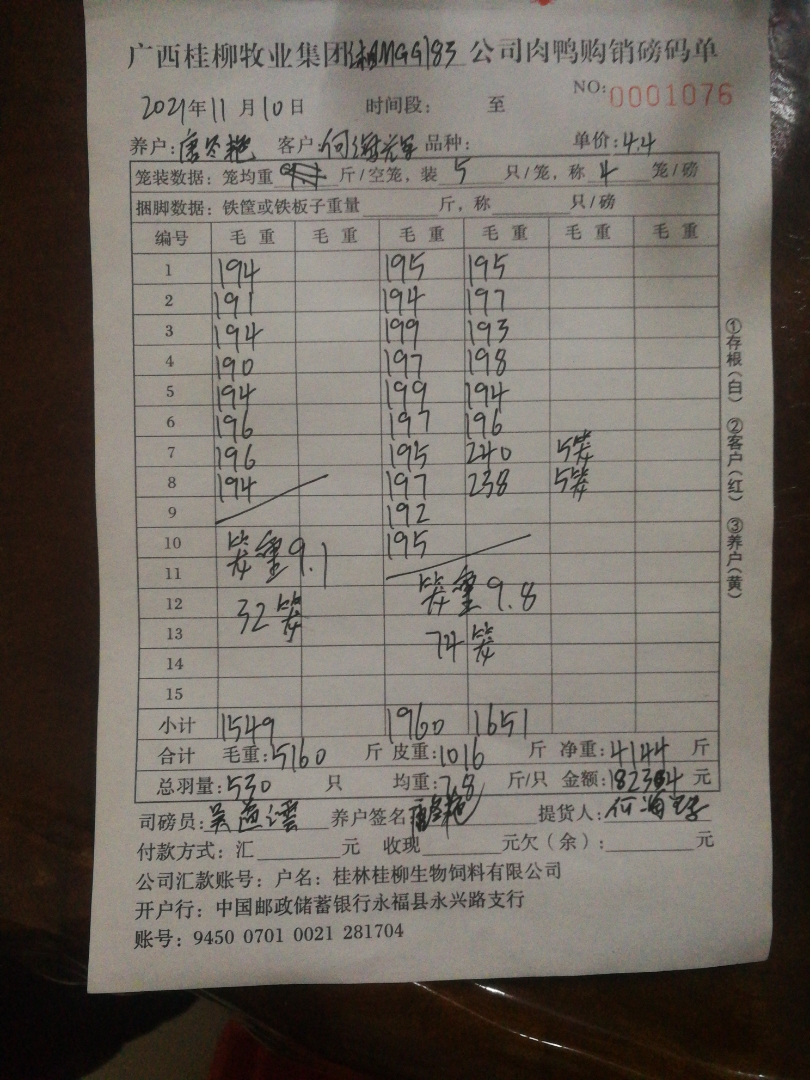 广西桂柳牧业集团(湘MGG)83公司肉鸭购销磅码单
NO:0001076
2021年11月10日 时间段: 至
养户: 客户:何海 品种: 单价:4.4
笼装数据:笼均重 斤/空笼,装5只/笼,称4笼/磅
捆脚数据:铁筐或铁板子重量 斤,称 只/磅
编号 毛重 毛重 毛重 毛重 毛重 毛重
1 194 195 195
2 191 194 197
3 194 199 193
4 190 197 198
5 194 199 194
6 196 197 196
7 196 195 240 5笼
8 194 197 238 5笼
9 192
10 195
笼重9.1
11
笼重9.8
12
32笼
13
74笼
14
15
小计 1549 1960 1651
合计 毛重:5160斤 皮重:1016斤 净重:4144斤
总羽量:530只 均重:7.8斤/只 金额:18234元
司磅员:吴 养户签名: 提货人:何海
付款方式:汇 元 收现 元欠(余): 元
公司汇款账号:户名:桂林桂柳生物饲料有限公司
开户行:中国邮政储蓄银行永福县永兴路支行
账号:9450 0701 0021 281704
①存根(白) ②客户(红) ③养户(黄)